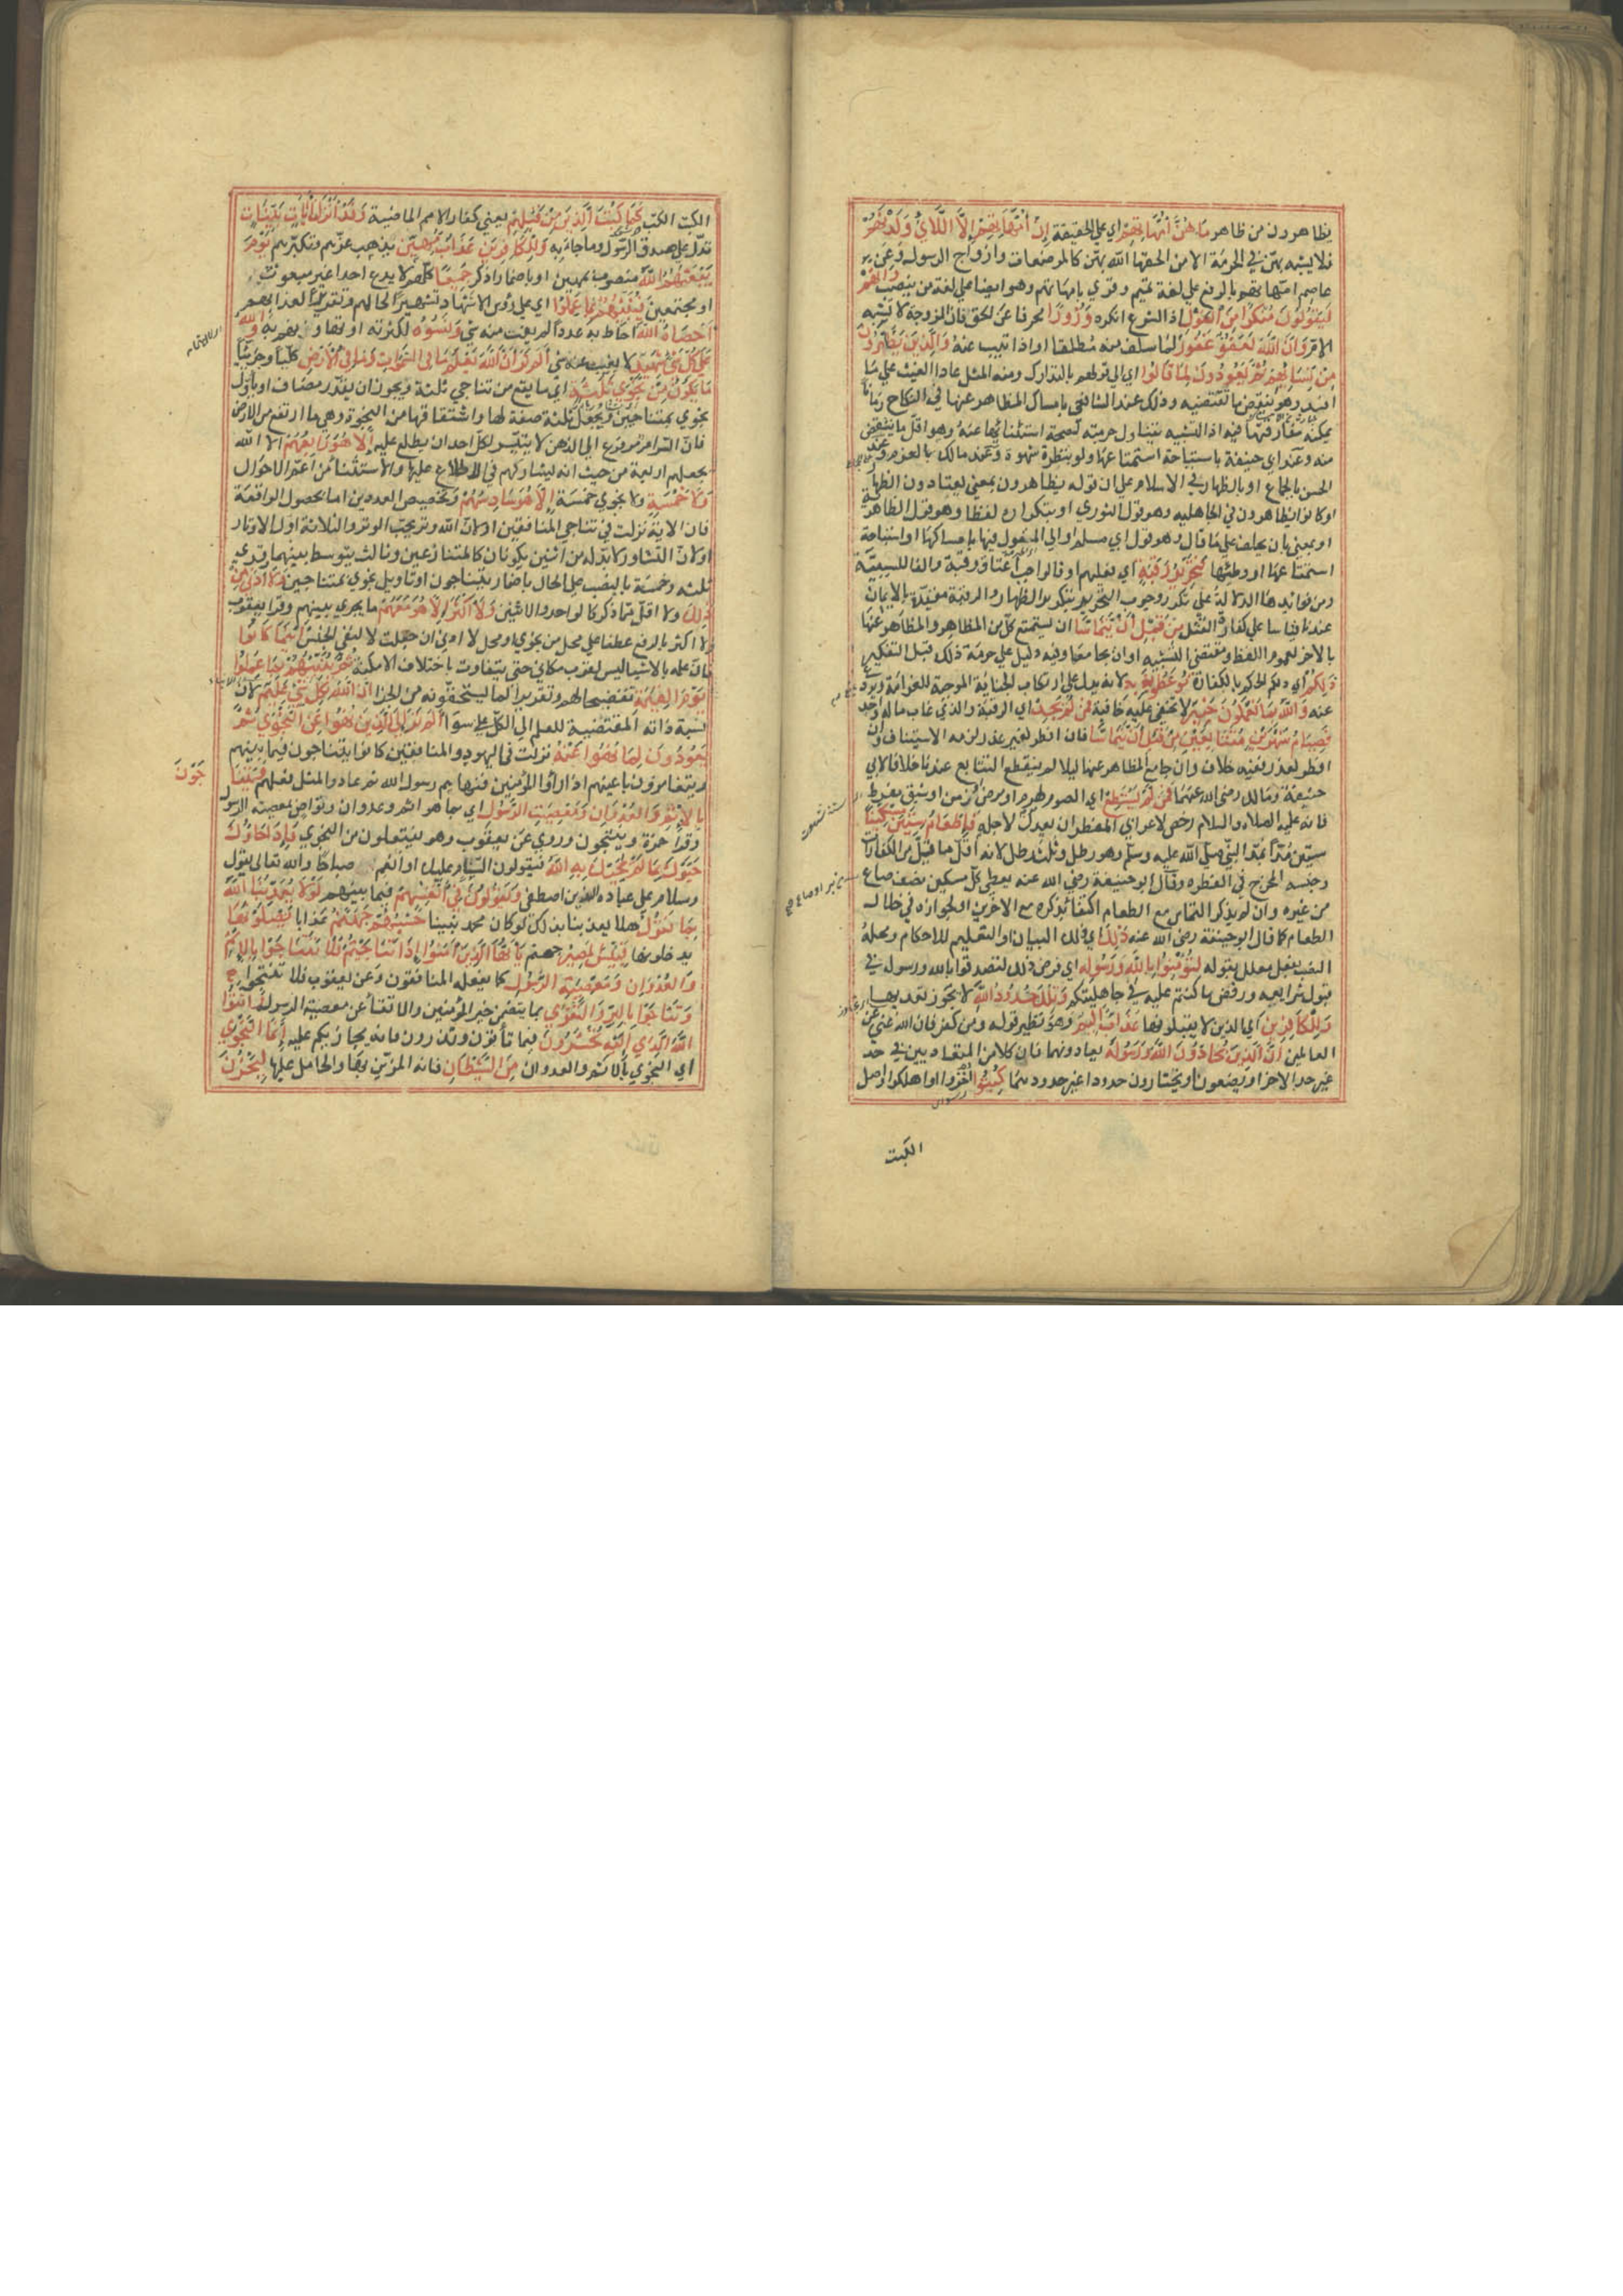 يظاهرون من ظاهر مَا هُنَّ أُمَّهَاتِهِمْ اي على الحقيقة إِنْ أُمَّهَاتُهُمْ إِلَّا اللَّائِي وَلَدْنَهُمْ
فلا يشبه بهن في الحرمة الا من الحقها الله بهن كالمرضعات وازواج الرسول وعن
عاصم امهاتهم بالرفع على لغة تميم وقرئ بامهاتهم وهو ايضا على لغة من ينصب وَإِنَّهُمْ
لَيَقُولُونَ مُنْكَرًا مِنَ الْقَوْلِ اذ الشرع انكره وَزُورًا محرفا عن الحق فان الزوجة لا تشبه
الام وَإِنَّ اللَّهَ لَعَفُوٌّ غَفُورٌ لما سلف منه مطلقا او اذا تيب عنه وَالَّذِينَ يُظَاهِرُونَ
مِنْ نِسَائِهِمْ ثُمَّ يَعُودُونَ لِمَا قَالُوا اي الى قولهم بالتدارك ومنه المثل عاد الغيث على ما
افسد وهو بنقض ما يقتضيه وذلك عند الشافعي بامساك المظاهر عنها في النكاح زمانا
يمكنه مفارقتها فيه اذ التشبيه يتناول حرمته لصحة استثنائها عنه وهو اقل ما ينتقض
منه وعند ابي حنيفة باستباحة استمتاعها ولو بنظرة شهوة وعند مالك بالعزم وعند
الحسن بالجماع او بالظهار في الاسلام على ان قوله يظاهرون بمعنى يعتادون الظهار
او كانوا يظاهرون في الجاهلية وهو قول الثوري او بتكراره لفظا وهو قول الظاهرية
او بمعنى بان يحلف على ما قال وهو قول ابي مسلم او الى المقول فيها بامساكها او استباحة
استمتاعها او وطئها فَتَحْرِيرُ رَقَبَةٍ اي فعليهم او فالواجب اعتاق رقبة والفا للسببية
ومن فوائدها الدلالة على تكرر وجوب التحرير بتكرر الظهار والرقبة مقيدة بالايمان
عندنا قياسا على كفارة القتل مِنْ قَبْلِ أَنْ يَتَمَاسَّا ان يستمتع كل من المظاهر والمظاهر عنها
بالاخر لعموم اللفظ ومقتضى التشبيه او ان يجامعها وفيه دليل على حرمة ذلك قبل التكفير
ذَلِكُمْ اي ذلكم الحكم بالكفارة تُوعَظُونَ بِهِ لانه يدل على ارتكاب الجناية الموجبة للغرامة ويردع
عنه وَاللَّهُ بِمَا تَعْمَلُونَ خَبِيرٌ لا تخفى عليه خافية فَمَنْ لَمْ يَجِدْ اي الرقبة والذي غاب ماله واجد
فَصِيَامُ شَهْرَيْنِ مُتَتَابِعَيْنِ مِنْ قَبْلِ أَنْ يَتَمَاسَّا فان افطر لغير عذر لزمه الاستيناف وان
افطر لعذر ففيه خلاف وان جامع المظاهر عنها ليلا لم ينقطع التتابع عندنا خلافا لابي
حنيفة ومالك رضي الله عنهما فَمَنْ لَمْ يَسْتَطِعْ اي الصوم لهرم او مرض مزمن او شبق مفرط
فانه عليه الصلاة والسلام رخص للاعرابي المفطر ان يعدل لاجله فَإِطْعَامُ سِتِّينَ مِسْكِينًا
ستين مدا بمد النبي صلى الله عليه وسلم وهو رطل وثلث رطل لانه اقل ما قيل في الكفارات
وجنسه المخرج في الفطرة وقال ابو حنيفة رضي الله عنه يعطي كل مسكين نصف صاع
من غيره وان لم يذكر التماس مع الطعام اكتفا بذكره مع الاخرين او لجوازه في خلال
الطعام كما قال ابو حنيفة رضي الله عنه ذَلِكَ اي ذلك البيان او التعليم للاحكام ومحله
النصب بفعل معلل بقوله لِتُؤْمِنُوا بِاللَّهِ وَرَسُولِهِ اي فرض ذلك لتصدقوا بالله ورسوله في
قبول شرايعه ورفض ما كنتم عليه في جاهليتكم وَتِلْكَ حُدُودُ اللَّهِ لا يجوز تعديها
وَلِلْكَافِرِينَ اي الذين لا يقبلونها عَذَابٌ أَلِيمٌ وهو نظير قوله ومن كفر فان الله غني عن
العالمين إِنَّ الَّذِينَ يُحَادُّونَ اللَّهَ وَرَسُولَهُ يعادونهما فان كلا من المتعاديين في حد
غير حد الاخر او يضعون او يختارون حدودا غير حدودهما كُبِتُوا اخزوا او اهلكوا واصل
الكبت
الكبت الكب كَمَا كُبِتَ الَّذِينَ مِنْ قَبْلِهِمْ يعني كفار الامم الماضية وَقَدْ أَنْزَلْنَا آيَاتٍ بَيِّنَاتٍ
تدل على صدق الرسول وما جاء به وَلِلْكَافِرِينَ عَذَابٌ مُهِينٌ يذهب عزهم وتكبرهم يَوْمَ
يَبْعَثُهُمُ اللَّهُ منصوب بمهين او باضمار اذكر جَمِيعًا كلهم لا يدع احدا غير مبعوث
او مجتمعين فَيُنَبِّئُهُمْ بِمَا عَمِلُوا اي على رؤس الاشهاد تشهيرا لحالهم وتقريرا لعذابهم
أَحْصَاهُ اللَّهُ احاط به عددا لم يغب منه شي وَنَسُوهُ لكثرته او تهاونهم به وَاللَّهُ
عَلَى كُلِّ شَيْءٍ شَهِيدٌ لا يغيب عنه شي أَلَمْ تَرَ أَنَّ اللَّهَ يَعْلَمُ مَا فِي السَّمَوَاتِ وَمَا فِي الْأَرْضِ كليا وجزئيا
مَا يَكُونُ مِنْ نَجْوَى ثَلَاثَةٍ اي ما يقع من تناجي ثلثة ويجوز ان يقدر مضاف او يأول
نجوى بمتناجين ويجعل ثلثة صفة لها واشتقاقها من النجوة وهي ما ارتفع من الارض
فان السر امر مرفوع الى الذهن لا يتيسر لكل احد ان يطلع عليه إِلَّا هُوَ رَابِعُهُمْ الا الله
يجعلهم اربعة من حيث انه يشاركهم في الاطلاع عليها والاستثناء من اعم الاحوال
وَلَا خَمْسَةٍ ولا نجوى خمسة إِلَّا هُوَ سَادِسُهُمْ وتخصيص العددين اما لخصوص الواقعة
فان الاية نزلت في تناجي المنافقين او لان الله وتر يحب الوتر والثلاثة اول الاوتار
او لان التشاور لا بد له من اثنين يكونان كالمتنازعين وثالث يتوسط بينهما وقرئ
ثلثه وخمسة بالنصب على الحال باضمار يتناجون او تاويل نجوى بمتناجين وَلَا أَدْنَى مِنْ
ذَلِكَ ولا اقل مما ذكر كالواحد والاثنين وَلَا أَكْثَرَ إِلَّا هُوَ مَعَهُمْ ما يجري بينهم وقرا يعقوب
ولا اكثر بالرفع عطفا على محل من نجوى او محل لا ادنى ان جعلت لا لنفي الجنس أَيْنَمَا كَانُوا
فان علمه بالاشيا ليس لقرب مكاني حتى يتفاوت باختلاف الامكنة ثُمَّ يُنَبِّئُهُمْ بِمَا عَمِلُوا
يَوْمَ الْقِيَامَةِ تفضيحا لهم وتقريرا لما يستحقونه من الجزا إِنَّ اللَّهَ بِكُلِّ شَيْءٍ عَلِيمٌ لان
نسبة ذاته المقتضية للعلم الى الكل على سوا أَلَمْ تَرَ إِلَى الَّذِينَ نُهُوا عَنِ النَّجْوَى ثُمَّ
يَعُودُونَ لِمَا نُهُوا عَنْهُ نزلت في اليهود والمنافقين كانوا يتناجون فيما بينهم
ويتغامزون باعينهم اذا راوا المؤمنين فنهاهم رسول الله ثم عادوا لمثل فعلهم وَيَتَنَا
جَوْنَ
بِالْإِثْمِ وَالْعُدْوَانِ وَمَعْصِيَتِ الرَّسُولِ اي بما هو اثم وعدوان وتواص بمعصية الرسول
وقرا حمزة وينتجون وروي عن يعقوب وهو يفتعلون من النجوى وَإِذَا جَاؤُكَ
حَيَّوْكَ بِمَا لَمْ يُحَيِّكَ بِهِ اللَّهُ فيقولون السام عليك او انعم صباحا والله تعالى يقول
وسلام على عباده الذين اصطفى وَيَقُولُونَ فِي أَنْفُسِهِمْ فيما بينهم لَوْلَا يُعَذِّبُنَا اللَّهُ
بِمَا نَقُولُ هلا يعذبنا بذلك لو كان محمد نبينا حَسْبُهُمْ جَهَنَّمُ عذابا يَصْلَوْنَهَا
يدخلونها فَبِئْسَ الْمَصِيرُ جهنم يَا أَيُّهَا الَّذِينَ آمَنُوا إِذَا تَنَاجَيْتُمْ فَلَا تَتَنَاجَوْا بِالْإِثْمِ
وَالْعُدْوَانِ وَمَعْصِيَةِ الرَّسُولِ كما يفعله المنافقون وعن يعقوب فلا تنتجوا
وَتَنَاجَوْا بِالْبِرِّ وَالتَّقْوَى بما يتضمن خير المؤمنين والاتقاء عن معصية الرسول وَاتَّقُوا
اللَّهَ الَّذِي إِلَيْهِ تُحْشَرُونَ فيما تاتون وتذرون فانه يجازيكم عليه إِنَّمَا النَّجْوَى
اي النجوى بالاثم والعدوان مِنَ الشَّيْطَانِ فانه المزين لها والحامل عليها لِيَحْزُنَ